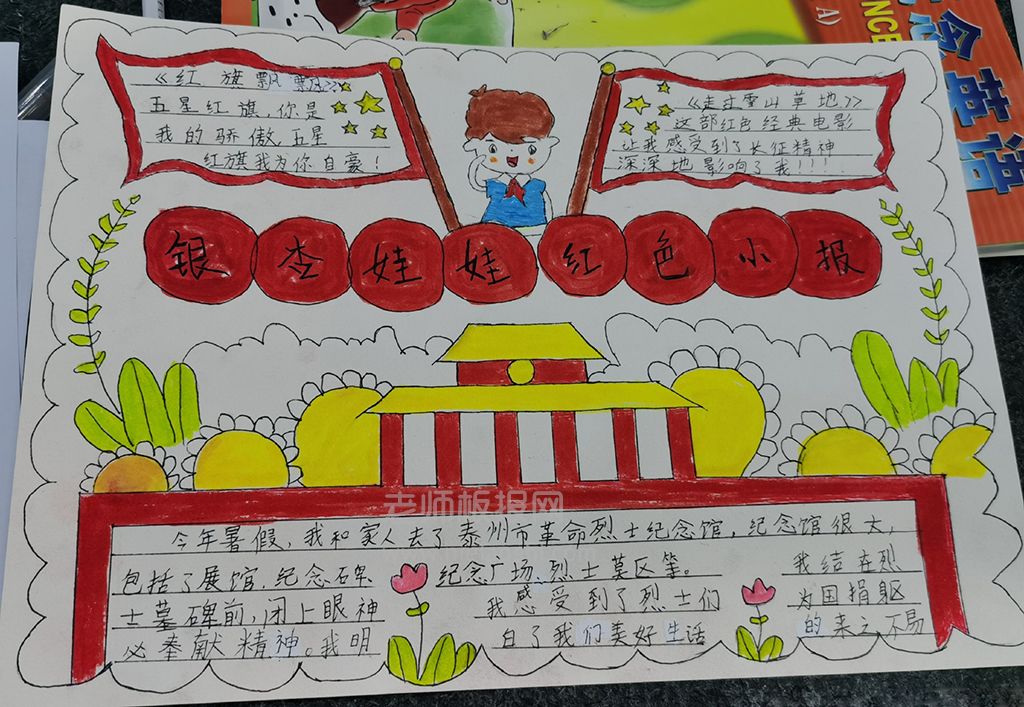 《红旗飘飘》
五星红旗，你是
我的骄傲，五星
红旗我为你自豪！
《走过雪山草地》
这部红色经典电影
让我感受到了长征精神
深深地影响了我！！！
银杏娃娃红色小报
老师板报网
今年暑假，我和家人去了泰州市革命烈士纪念馆，纪念馆很大，
包括了展馆、纪念碑 纪念广场、烈士墓区等。 我结在烈
士墓碑前，闭上眼神 我感受到了烈士们 为国捐躯
必奉献精神。我明 白了我们美好生活 的来之不易
NCE
A)
念英语